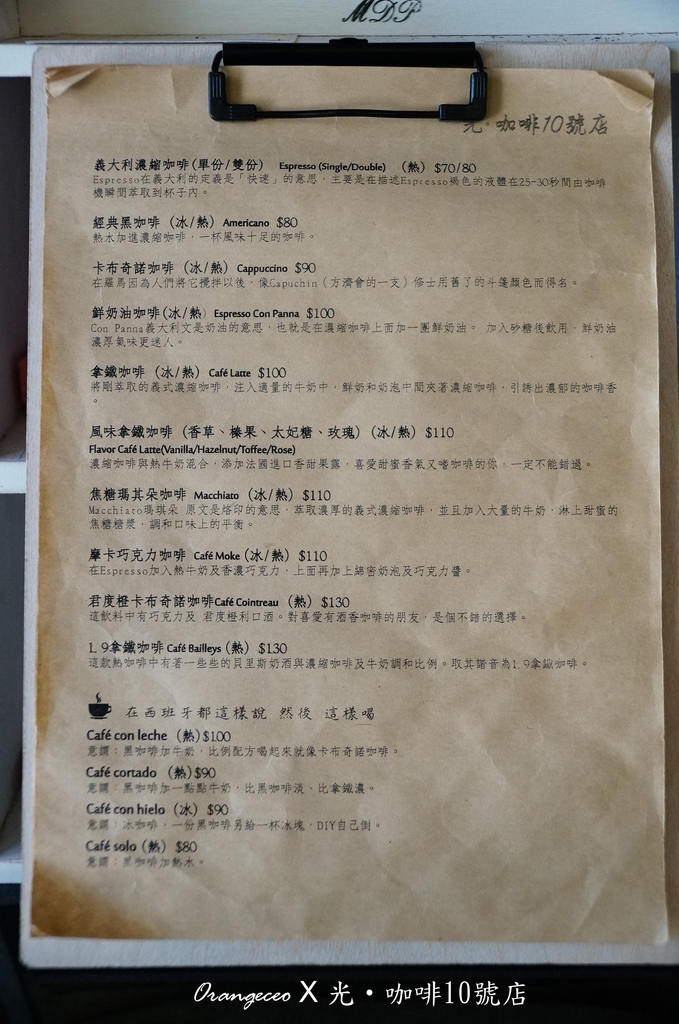 MDP
光·咖啡10號店
義大利濃縮咖啡(單份/雙份) Espresso (Single/Double) (熱) $70/80
Espresso在義大利的定義是「快速」的意思，主要是在描述Espresso褐色的液體在25-30秒間由咖啡
機瞬間萃取到杯子內。
經典黑咖啡 (冰/熱) Americano $80
熱水加進濃縮咖啡，一杯風味十足的咖啡。
卡布奇諾咖啡 (冰/熱) Cappuccino $90
在羅馬因為人們將它攪拌以後，像Capuchin (方濟會的一支) 修士用舊了的斗篷顏色而得名。
鮮奶油咖啡(冰/熱) Espresso Con Panna $100
Con Panna義大利文是奶油的意思，也就是在濃縮咖啡上面加一團鮮奶油。 加入砂糖後飲用，鮮奶油
濃厚氣味更迷人。
拿鐵咖啡 (冰/熱) Café Latte $100
將剛萃取的義式濃縮咖啡，注入適量的牛奶中，鮮奶和奶泡中間夾著濃縮咖啡，引誘出濃郁的咖啡香
。
風味拿鐵咖啡 (香草、榛果、太妃糖、玫瑰) (冰/熱) $110
Flavor Café Latte(Vanilla/Hazelnut/Toffee/Rose)
濃縮咖啡與熱牛奶混合，添加法國進口香甜果露，喜愛甜蜜香氣又嗜咖啡的你，一定不能錯過。
焦糖瑪其朵咖啡 Macchiato (冰/熱) $110
Macchiato瑪琪朵 原文是烙印的意思，萃取濃厚的義式濃縮咖啡，並且加入大量的牛奶，淋上甜蜜的
焦糖糖漿，調和口味上的平衡。
摩卡巧克力咖啡 Café Moke (冰/熱) $110
在Espresso加入熱牛奶及香濃巧克力，上面再加上綿密奶泡及巧克力醬。
君度橙卡布奇諾咖啡Café Cointreau (熱) $130
這飲料中有巧克力及 君度橙利口酒。對喜愛有酒香咖啡的朋友，是個不錯的選擇。
1.9拿鐵咖啡 Café Bailleys (熱) $130
這款熱咖啡中有著一些些的貝里斯奶酒與濃縮咖啡及牛奶調和比例。取其諧音為1.9拿鐵咖啡。
在西班牙都這樣說 然後 這樣喝
Café con leche (熱) $100
意謂：黑咖啡加牛奶，比例配方喝起來就像卡布奇諾咖啡。
Café cortado (熱) $90
意謂：黑咖啡加一點點牛奶，比黑咖啡淡、比拿鐵濃。
Café con hielo (冰) $90
意謂：冰咖啡，一份黑咖啡另給一杯冰塊，DIY自己倒。
Café solo (熱) $80
意謂：黑咖啡加熱水。
Orangeceo X 光·咖啡10號店